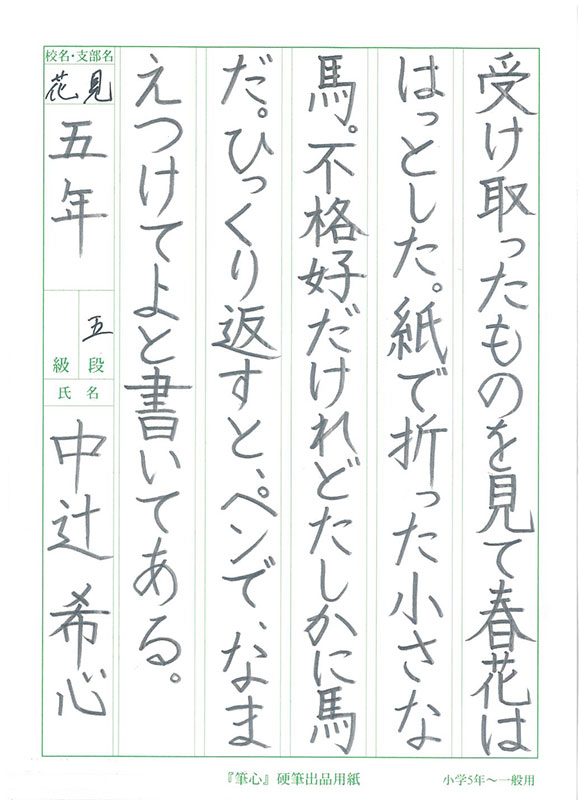 受け取ったものを見て春花は
はっとした。紙で折った小さな
馬。不格好だけれどたしかに馬
だ。ひっくり返すと、ペンで、なま
えつけてよと書いてある。
校名・支部名
花見
五年
五
段
級
氏名
中辻 希心
『筆心』硬筆出品用紙
小学5年〜一般用